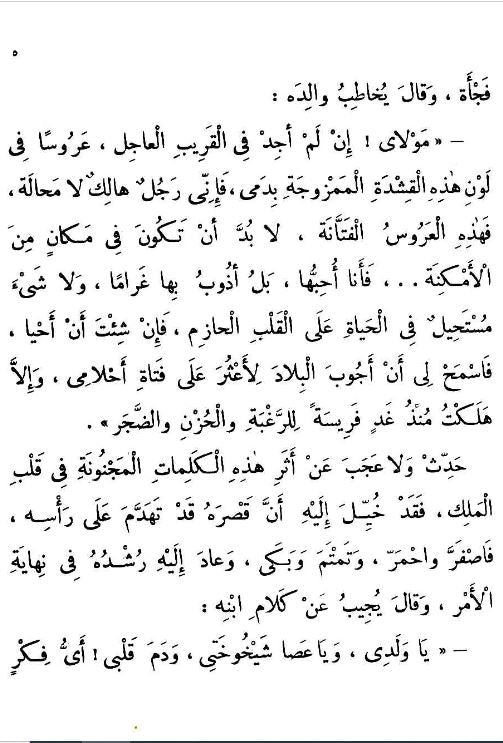 ٥
فَجْأَة ، وَقالَ يُخاطِبُ والِدَه :
— « مَوْلاى ! إنْ لَمْ أجِدْ فِى الْقَرِيبِ الْعاجِل ، عَرُوسًا فِى
لَوْنِ هٰذِهِ الْقِشْدَةِ الْمَمْزوجَةِ بِدَمى ، فَإنِّى رَجُلٌ هالِكٌ لا مَحالَة ،
فَهٰذِهِ الْعَرُوسُ الْفَتّانَة ، لا بُدَّ أنْ تَكُونَ فِى مَكانٍ مِنَ
الْأمْكِنَة ... فَأنا أُحِبُّها ، بَلْ أذُوبُ بِها غَرامًا ، وَلا شَىْءَ
مُسْتَحِيلٌ فِى الْحَياةِ عَلَى الْقَلْبِ الْحازِم ، فَإنْ شِئْتَ أنْ أحْيا ،
فَاسْمَحْ لِى أنْ أجُوبَ الْبِلادَ لِأعْثُرَ عَلَى فَتاةِ أحْلامِى ، وَإلاَّ
هَلَكْتُ مُنْذُ غَدٍ فَرِيسَةً لِلرَّغْبَةِ والْحُزْنِ والضَّجَر » .
حَدِّثْ وَلا عَجَبَ عَنْ أثَرِ هٰذِهِ الْكَلِماتِ الْمَجْنُونَةِ فِى قَلْبِ
الْمَلِك ، فَقَدْ خُيِّلَ إلَيْهِ أنَّ قَصْرَهُ قَدْ تَهَدَّمَ عَلَى رَأْسِه ،
فَاصْفَرَّ واحْمَرّ ، وَتَمْتَمَ وَبَكَى ، وَعادَ إلَيْهِ رُشْدُهُ فِى نِهايَةِ
الْأمْر ، وَقالَ يُجِيبُ عَنْ كَلامِ ابْنِه :
— « يا وَلَدِى ، وَيا عَصا شَيْخُوخَتِى ، وَدَمَ قَلْبى ! أىُّ فِكْرٍ